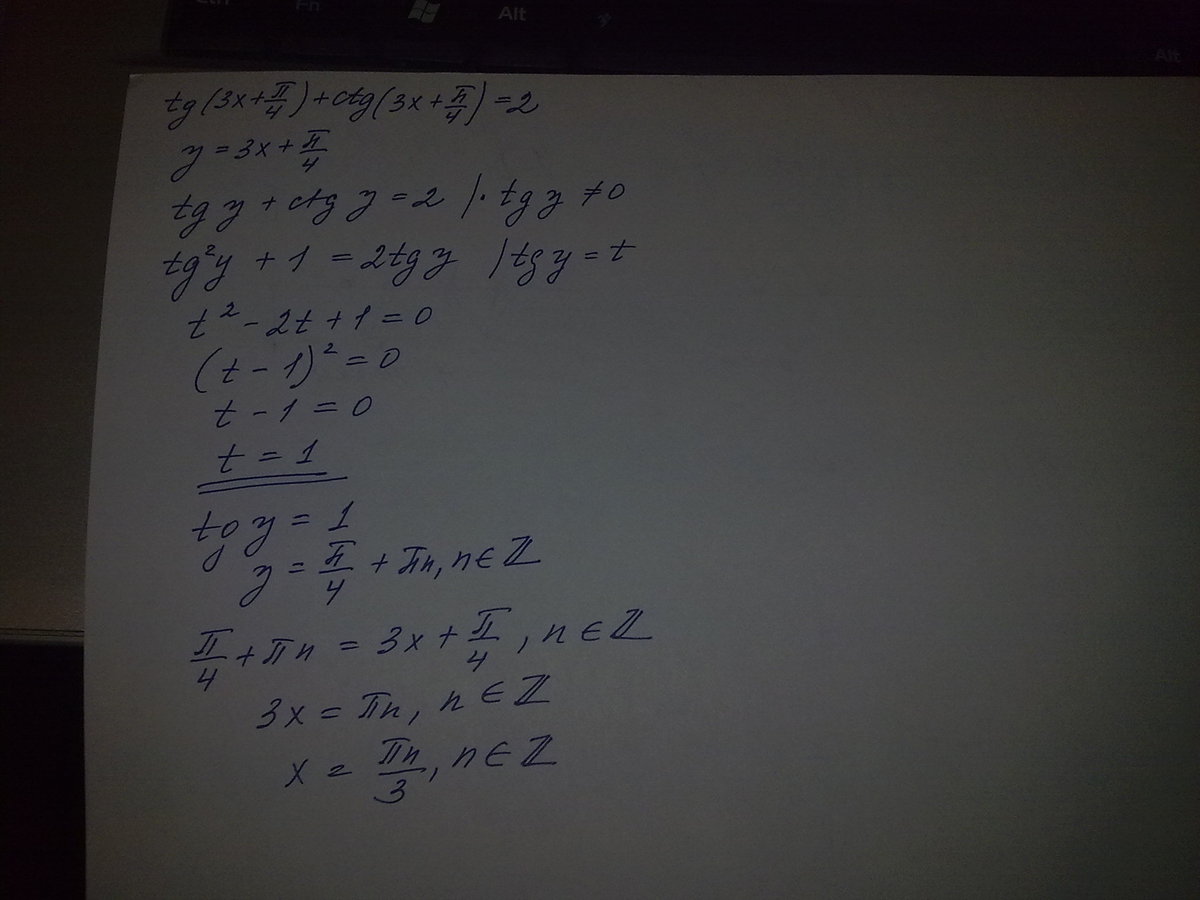 Fn
Alt
Alt
tg(3x+π/4)+ctg(3x+π/4)=2
y=3x+π/4
tg y + ctg y = 2 |· tg y ≠ 0
tg²y + 1 = 2tg y |tg y = t
t² - 2t + 1 = 0
(t - 1)² = 0
t - 1 = 0
t = 1
tg y = 1
y = π/4 + πn, n∈ℤ
π/4 + πn = 3x + π/4, n∈ℤ
3x = πn, n∈ℤ
x = πn/3, n∈ℤ